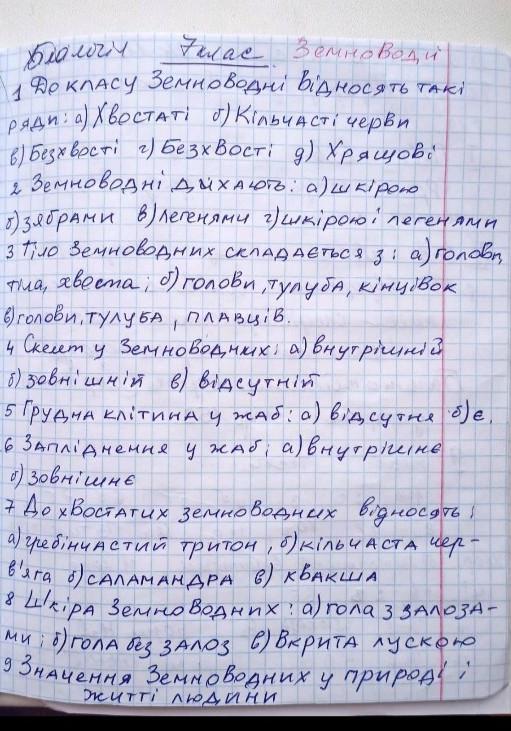 Біологія 7клас Земноводні
1 До класу Земноводні відносять такі
ряди: а) Хвостаті б) Кільчасті черви
в) Безхвості г) Безхвості д) Хрящові
2 Земноводні дихають: а) шкірою
б) зябрами в) легенями г) шкірою і легенями
3 Тіло Земноводних складається з: а) голови,
тіла, хвоста; б) голови, тулуба, кінцівок
в) голови, тулуба, плавців.
4 Скелет у Земноводних: а) внутрішній
б) зовнішній в) відсутній
5 Грудна клітина у жаб: а) відсутня б) є.
6 Запліднення у жаб: а) внутрішнє
б) зовнішнє
7 До хвостатих земноводних відносять:
а) гребінчастий тритон, б) кільчаста чер-
в'яга б) саламандра в) квакша
8 Шкіра Земноводних: а) гола з залоза-
ми; б) гола без залоз в) вкрита лускою
9 Значення Земноводних у природі і
житті людини